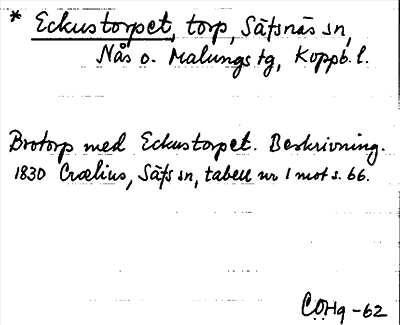 * Eckustorpet, torp, Säfsnäs sn,
Nås o. Malungs tg, Koppb. l.
Brotorp med Eckustorpet. Beskrivning.
1830 Crælius, Säfs sn, tabell nr 1 mot s. 66.
COHg -62